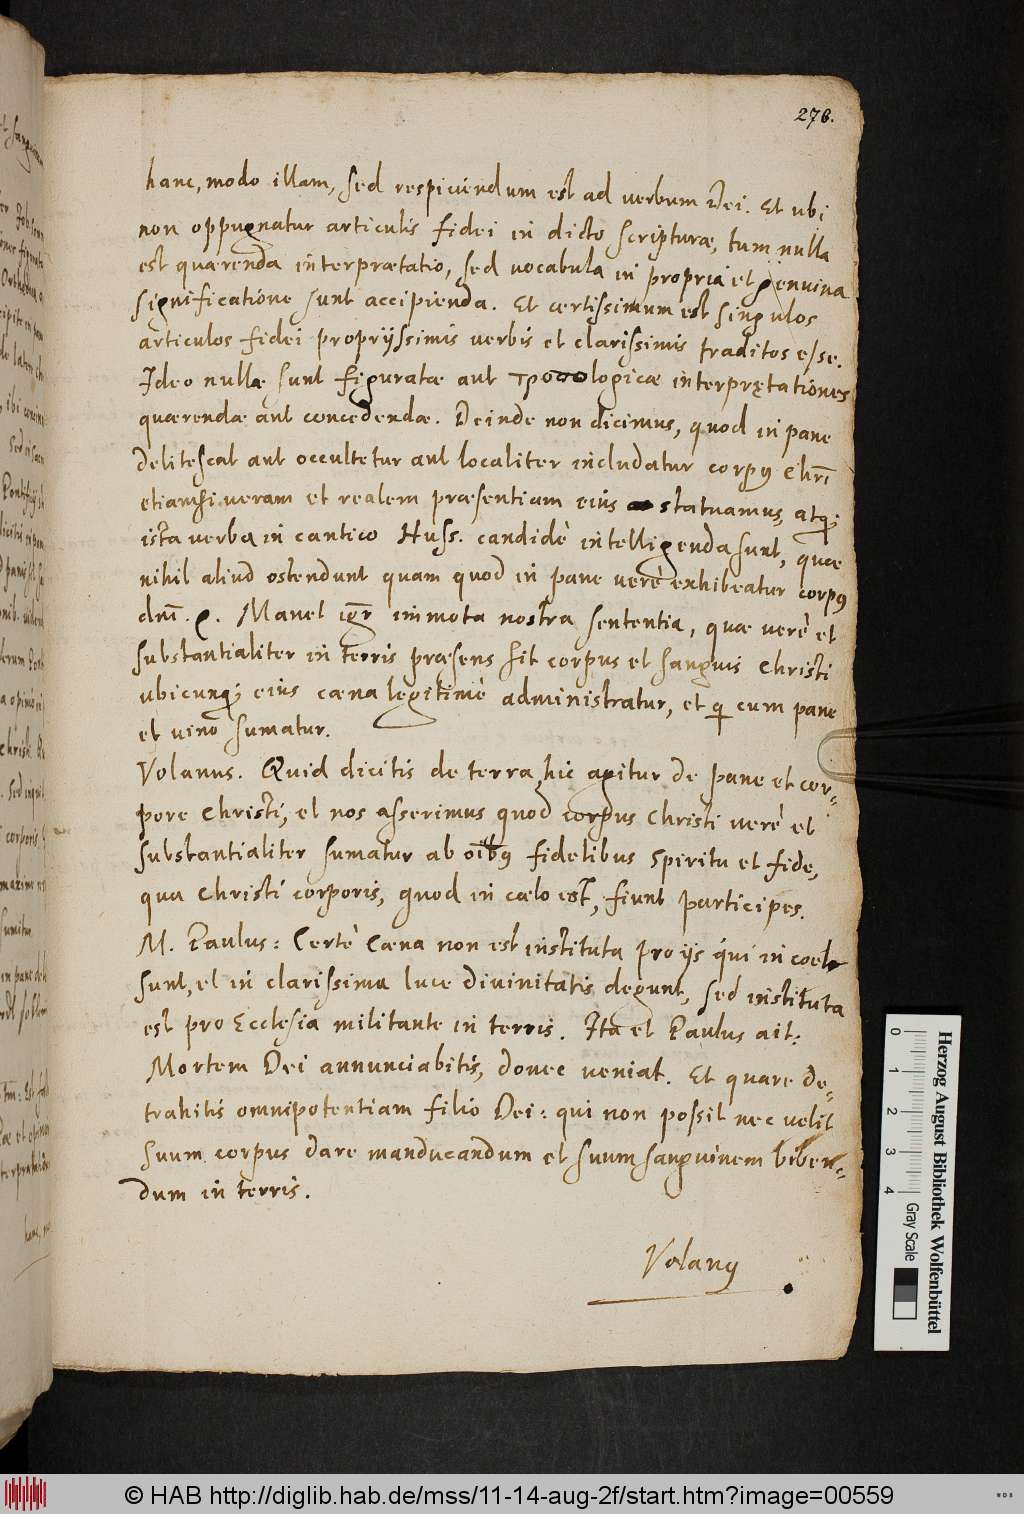 276.
hanc, modo illam, sed respiciendum est ad verbum Dei. Et ubi
non oppugnatur articulis fidei in dicto scripturæ, tum nulla
est quærenda interprætatio, sed vocabula in propria et genuina
significatione sunt accipienda. Et certissimum est singulos
articulos fidei proprijssimis verbis et clarissimis traditos esse.
Ideo nullæ sunt figuratæ aut logicæ interprętationes
quærendæ aut concedendæ. Deinde non dicimus, quod in pane
delitescat aut occultetur aut localiter includatur corpꝰ Chrī
etiamsi veram et realem præsentiam eius statuamus, atqꝫ
ista verba in cantico Huss. candidè intelligenda sunt, quæ
nihil aliud ostendunt quam quod in pane verè exhibeatur corpꝰ
dnī. Manet igr̄ immota nostra sententia, quæ verè et
substantialiter in terris præsens sit corpus et sanguis Christi
ubicunqꝫ eius cæna legitimè administratur, et cum pane
et vino sumatur.
Volanus. Quid dicitis de terra, hic agitur de pane et cor-
pore Christi, et nos asserimus quod corpus Christi verè et
substantialiter sumatur ab oībꝰ fidelibus spiritu et fide,
qua Christi corporis, quod in cælo est, fiunt participes.
M. Paulus: Certè Cæna non est instituta pro ijs qui in coelo
sunt, et in clarissima luce divinitatis degunt, sed instituta
est pro Ecclesia militante in terris. Ita et Paulus ait:
Mortem Dei annunciabitis, donec veniat. Et quare de-
trahitis omnipotentiam filio Dei: qui non possit nec velit
suum corpus dare manducandum et suum sanguinem biben-
dum in terris.
Volanꝰ
Herzog August Bibliothek Wolfenbüttel
0 1 2 3 4 Gray Scale
© HAB http://diglib.hab.de/mss/11-14-aug-2f/start.htm?image=00559